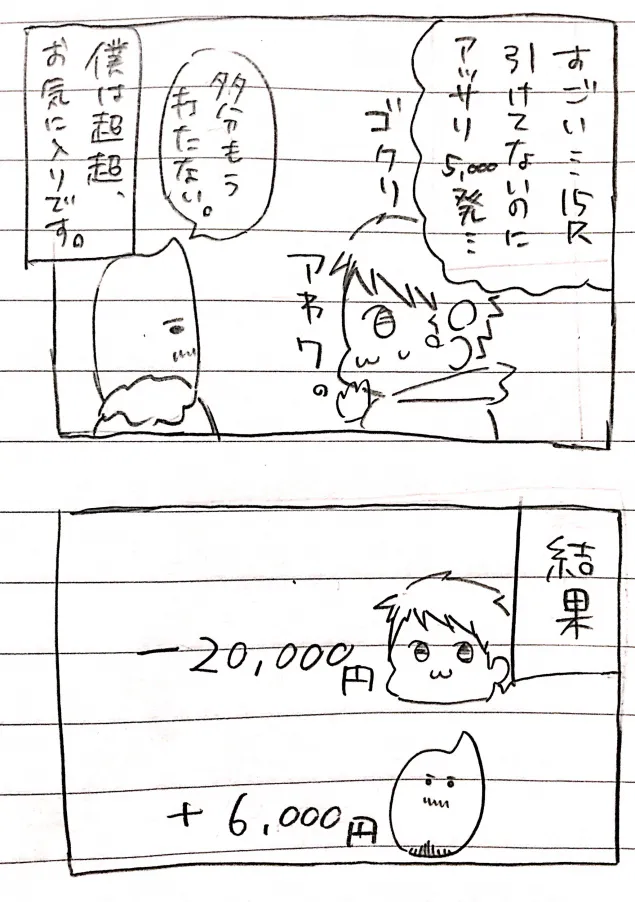 すごい…15R
引けてないのに
アッサリ5,000発…
ゴクリ
アネワ。
多分もう
打たない。
僕は超超、
お気に入りです。
結果
−20,000円
+6,000円